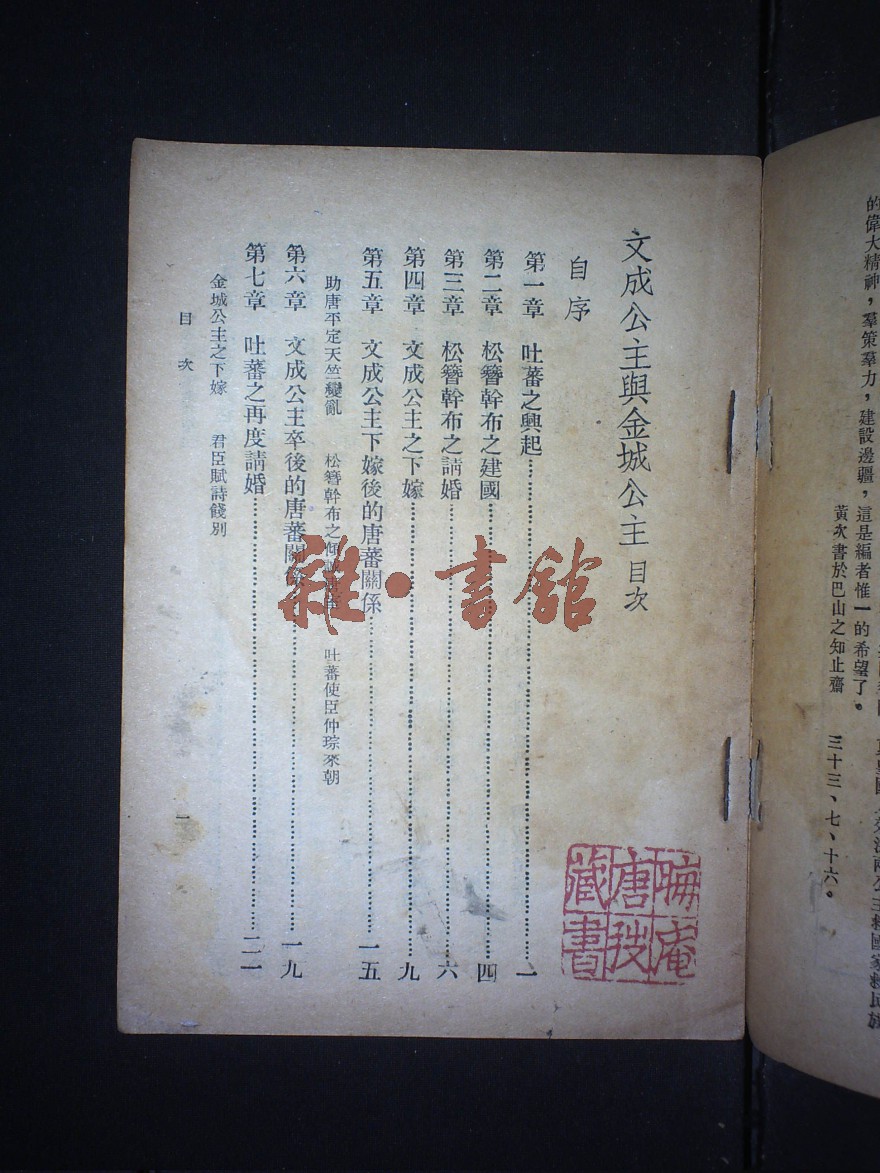 的偉大精神，羣策羣力，建設邊疆，這是編者惟一的希望了。
黃次書於巴山之知止齋
三十三、七、十六。
文成公主與金城公主 目次
自序
第一章 吐蕃之興起……一
第二章 松簪幹布之建國……四
第三章 松簪幹布之請婚……六
第四章 文成公主之下嫁……九
第五章 文成公主下嫁後的唐蕃關係……一五
助唐平定天竺變亂 松簪幹布之 吐蕃使臣仲琮來朝
第六章 文成公主卒後的唐蕃關係……一九
第七章 吐蕃之再度請婚……二一
金城公主之下嫁 君臣賦詩餞別
目次 一
晦庵
唐弢
藏書
雜·書館